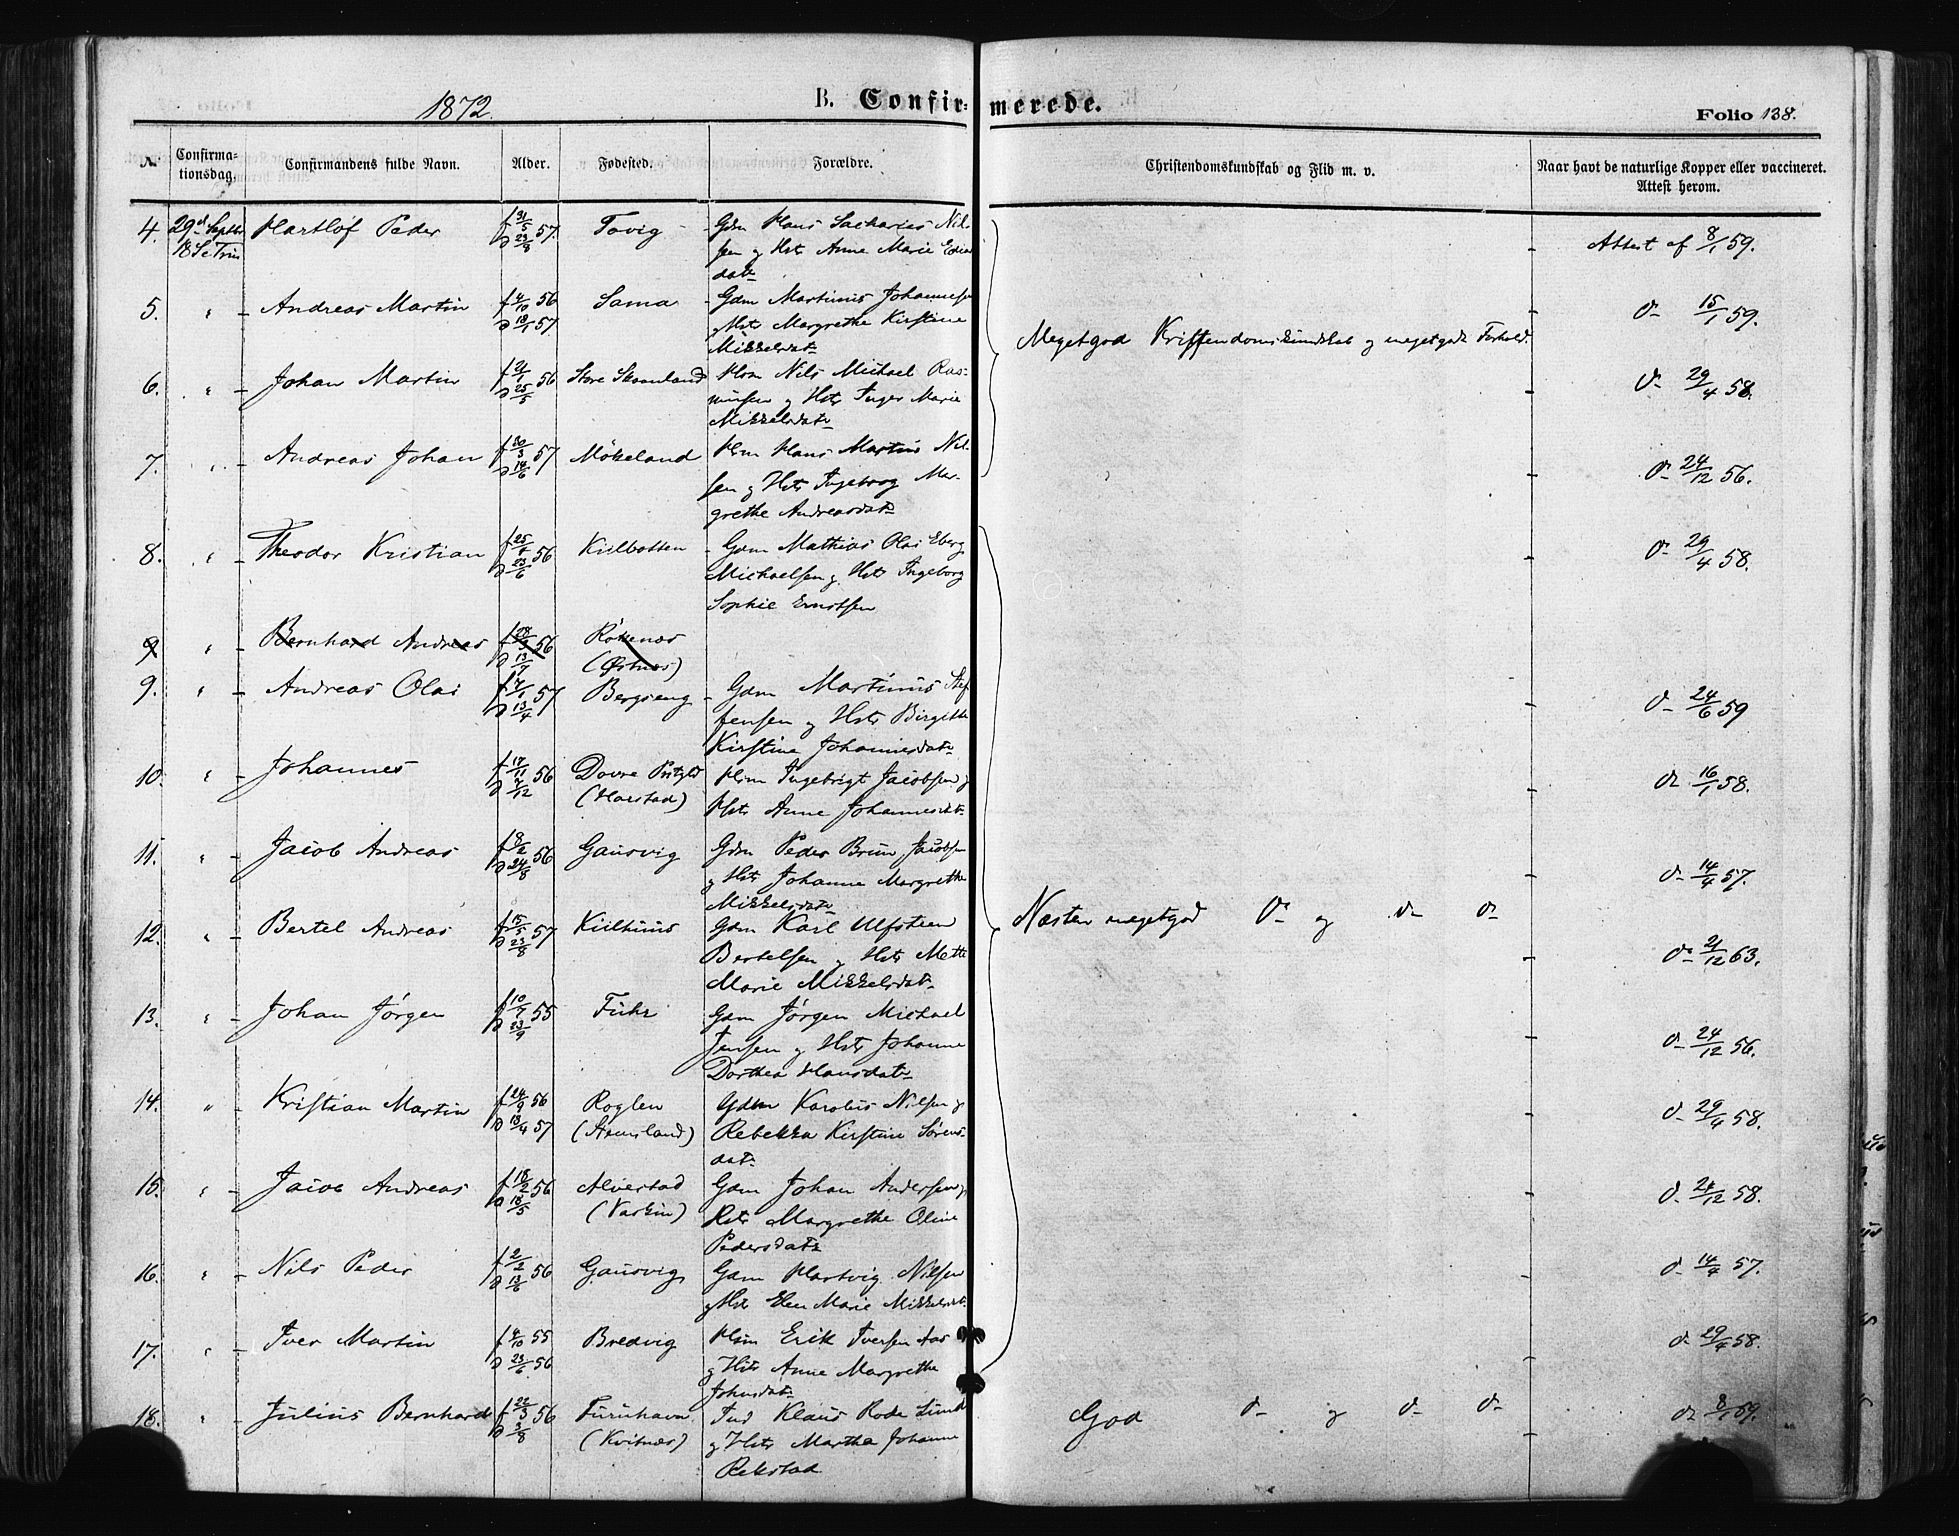 1872.
B. Confir-
merede.
Folio 138.
No.
Confirma-
tionsdag.
Confirmandens fulde Navn.
Alder.
Fødested.
Forældre.
Christendomskundskab og Flid m. v.
Naar havt de naturlige Kopper eller vaccineret.
Attest herom.
4. 29d Septbr Hartlof Peder f 31/5 D 23/8 57. Tovig - Gdm Hans Sacharias Nil-
18 S e Trin sen og Hst Anne Marie
datr
Attest af 8/1 59.
5. " Andreas Martin f 4/10 56 Sama - Gdm Martinus Johannesen
D 18/1 57 og Hst Margrethe Kirstine
Mikkelsdatr
D- 15/1 59.
Megetgod Kristendomskundskab og megetgodt Forhold.
6. " Johan Martin f 21/1 D 25/5 56 Store Skomland Hsm Nils Michael Ras-
mussen og Hst Inger Marie
Mikkelsdatr
D- 29/4 58.
7. " Andreas Johan f 30/3 D 14/6 57 Møkeland Hsm Hans Martin Nil-
sen og Hst Ingeborg Mar-
grethe Andreasdatr
D- 24/12 56.
8. " Theodor Kristian D 23/6 56 Kilbotten - Gdm Mathias Olai Eberg
Michaelsen og Hst Ingeborg
Sophie Ernstsen
D- 29/4 58.
9 " Bernhard Andreas D 13/7 56 Røkenæs
(Østnæs)
9. " Andreas Olai f 7/1 D 13/4 57 Bergseng - Gdm Martinus Stef
fensen og Hst Birgitte
Kirstine Johannesdatr
D- 24/6 59
10. " Johannes f 17/11 D /12 56 Dovre Pstgld Hsm Ingebrigt Jacobsen og
(Harstad) Hst Anne Johannesdatr
D- 16/1 58.
11. " Jacob Andreas f 8/2 D 24/8 56 Gausvig Gdm Peder Brun Jacobsen
og Hst Johanne Margrethe
Mikkelsdatr
D- 14/4 57.
Næsten megetgod D- og D- D-
12. " Bertel Andreas f 15/5 D 23/8 57 Kiilhuus Gdm Karl Ulfsteen
Bertelsen og Hst Mette
Marie Mikkelsdatr
D- 21/12 63.
13. " Johan Jørgen f 10/7 D 23/9 55 Fuhr Gdm Jørgen Michael
Jensen og Hst Johanne
Dorthea Hansdatr
D- 24/12 56.
14. " Kristian Martin f 24/9 56 Roglen Gdm Karolus Nilsen og
D 13/4 57 Rebekka Kirstine Sørens-
datr
D- 29/4 58.
15. " Jacob Andreas f 18/2 D 18/5 56 Alvestad Gdm Johan Andersen og
Hst Margrethe Oline
Pedersdatr
D- 58.
16. " Nils Peder f 2/2 D 13/6 56 Gausvig Gdm Hartvig Nilsen
og Hst Elen Marie Mikkelsdatr
D- 14/4 57.
17. " Iver Martin f 4/10 55 Bredvig Hsm Erik Iversen Aas
D 23/6 56 og Hst Anne Margrethe
Johnsdatr
D- 29/4 58.
18. " Julius Bernhard f 22/3 D 3/8 56 Furuhavn Ind Klaus Rode Lund
(Kvitnæs) og Hst Martha Johanne
Rekstad
God D- og D- D-
D- 8/1 59.